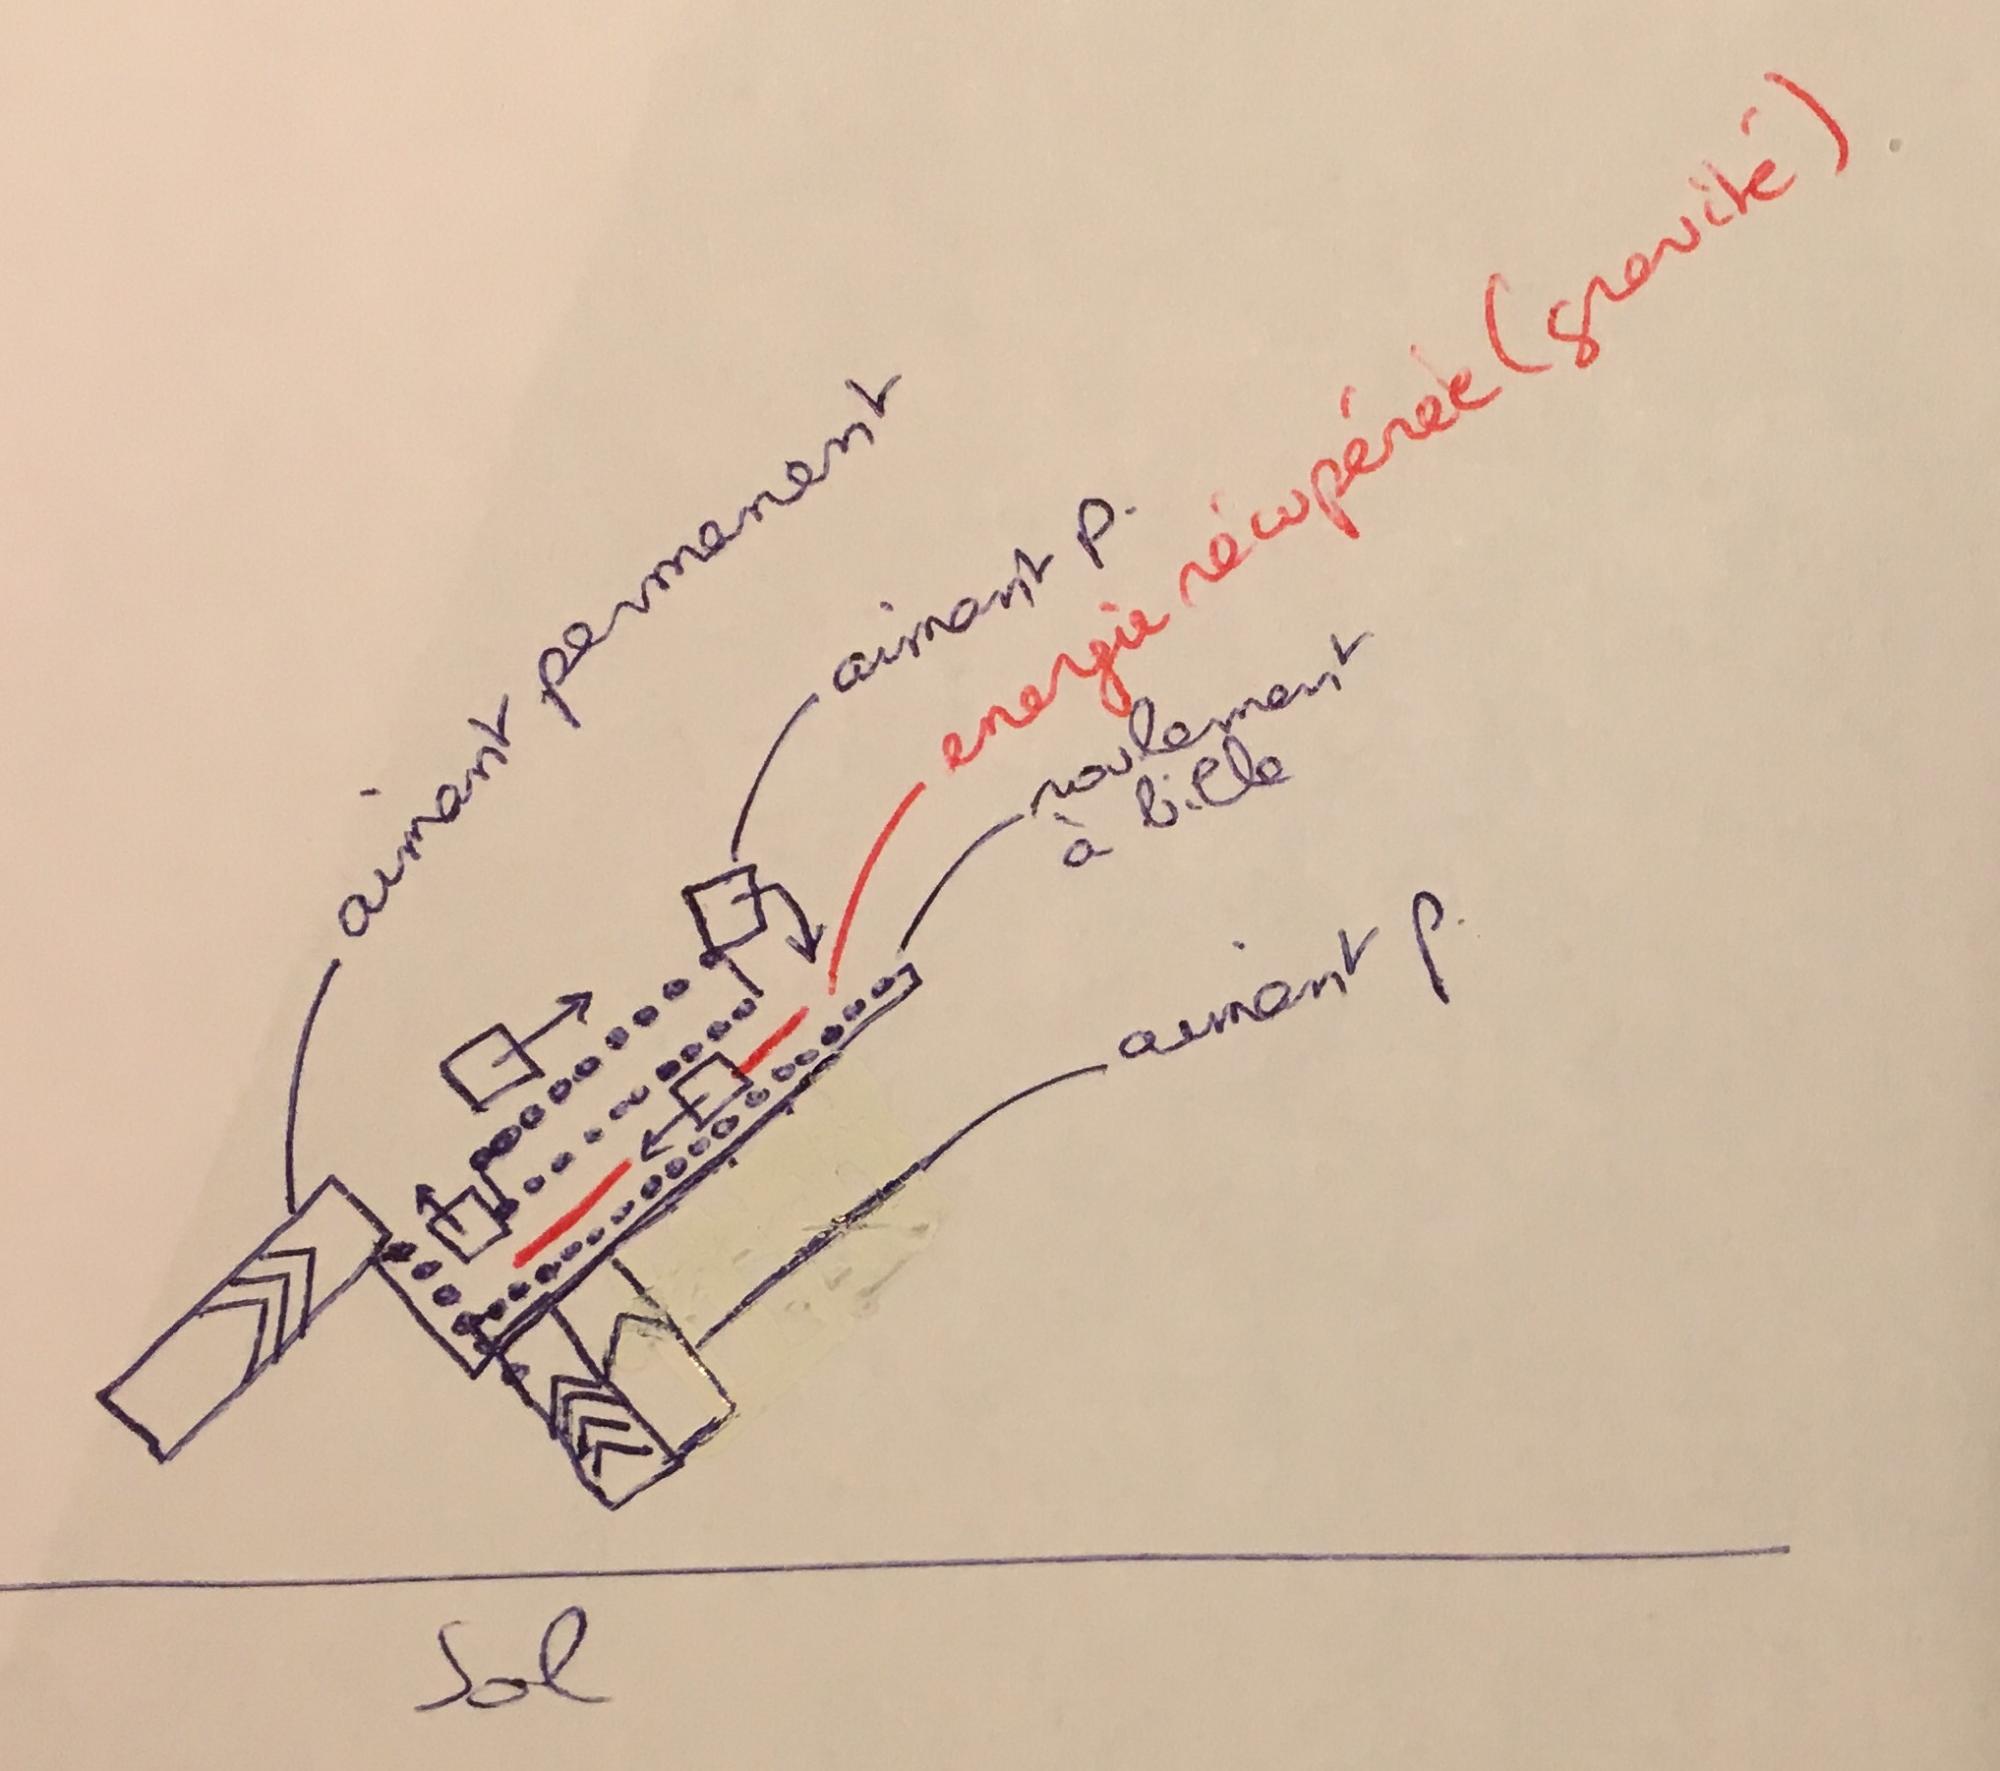 aimant permanent
aimant p.
energie récupérée (gravité)
roulement
à bille
aimant p.
Sol